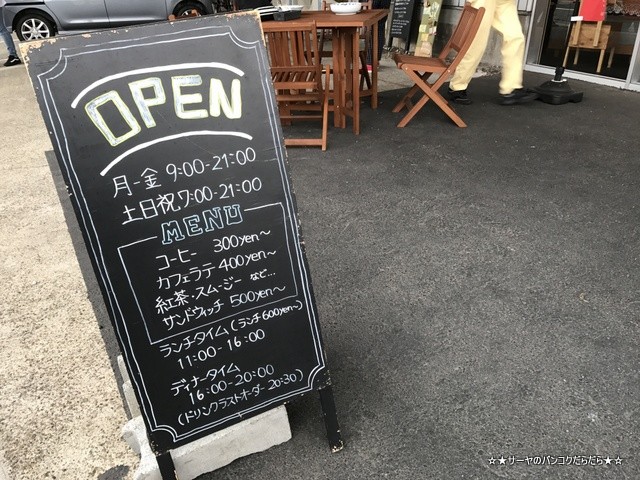 OPEN
月-金 9:00-21:00
土日祝 7:00-21:00
MENU
コーヒー 300yen〜
カフェラテ 400yen〜
紅茶・スムージー など...
サンドウィッチ 500yen〜
ランチタイム (ランチ600yen〜)
11:00-16:00
ディナータイム
16:00-20:00
(ドリンクラストオーダー 20:30)
☆★サーヤのバンコクだらだら★☆